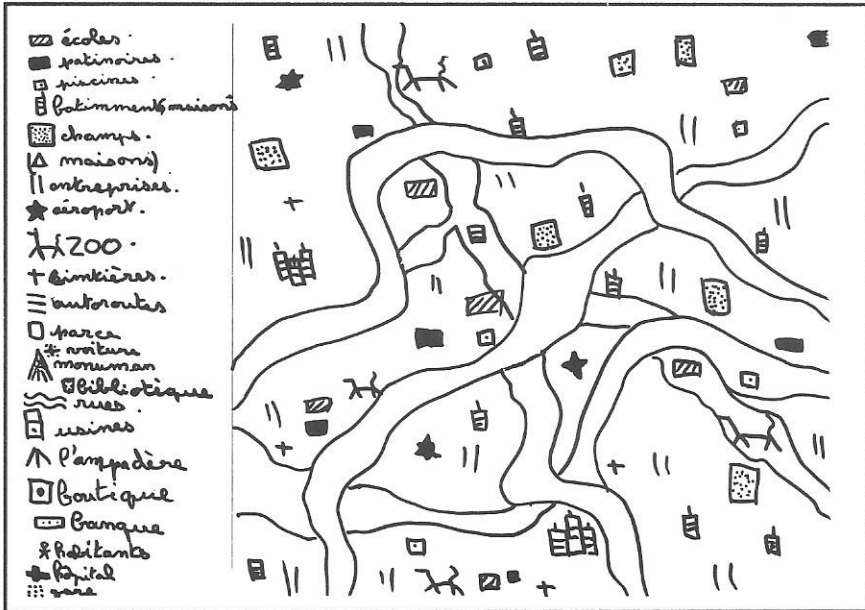 écoles.
patinoires.
piscines.
batimments, maisons
champs.
(maisons)
entreprises.
aéroport.
ZOO.
cimtières.
autoroutes
parcs
voiture
monuman
bibliotèque
rues.
usines.
l'ampadère
boutique
banque
habitants
hôpital
gare